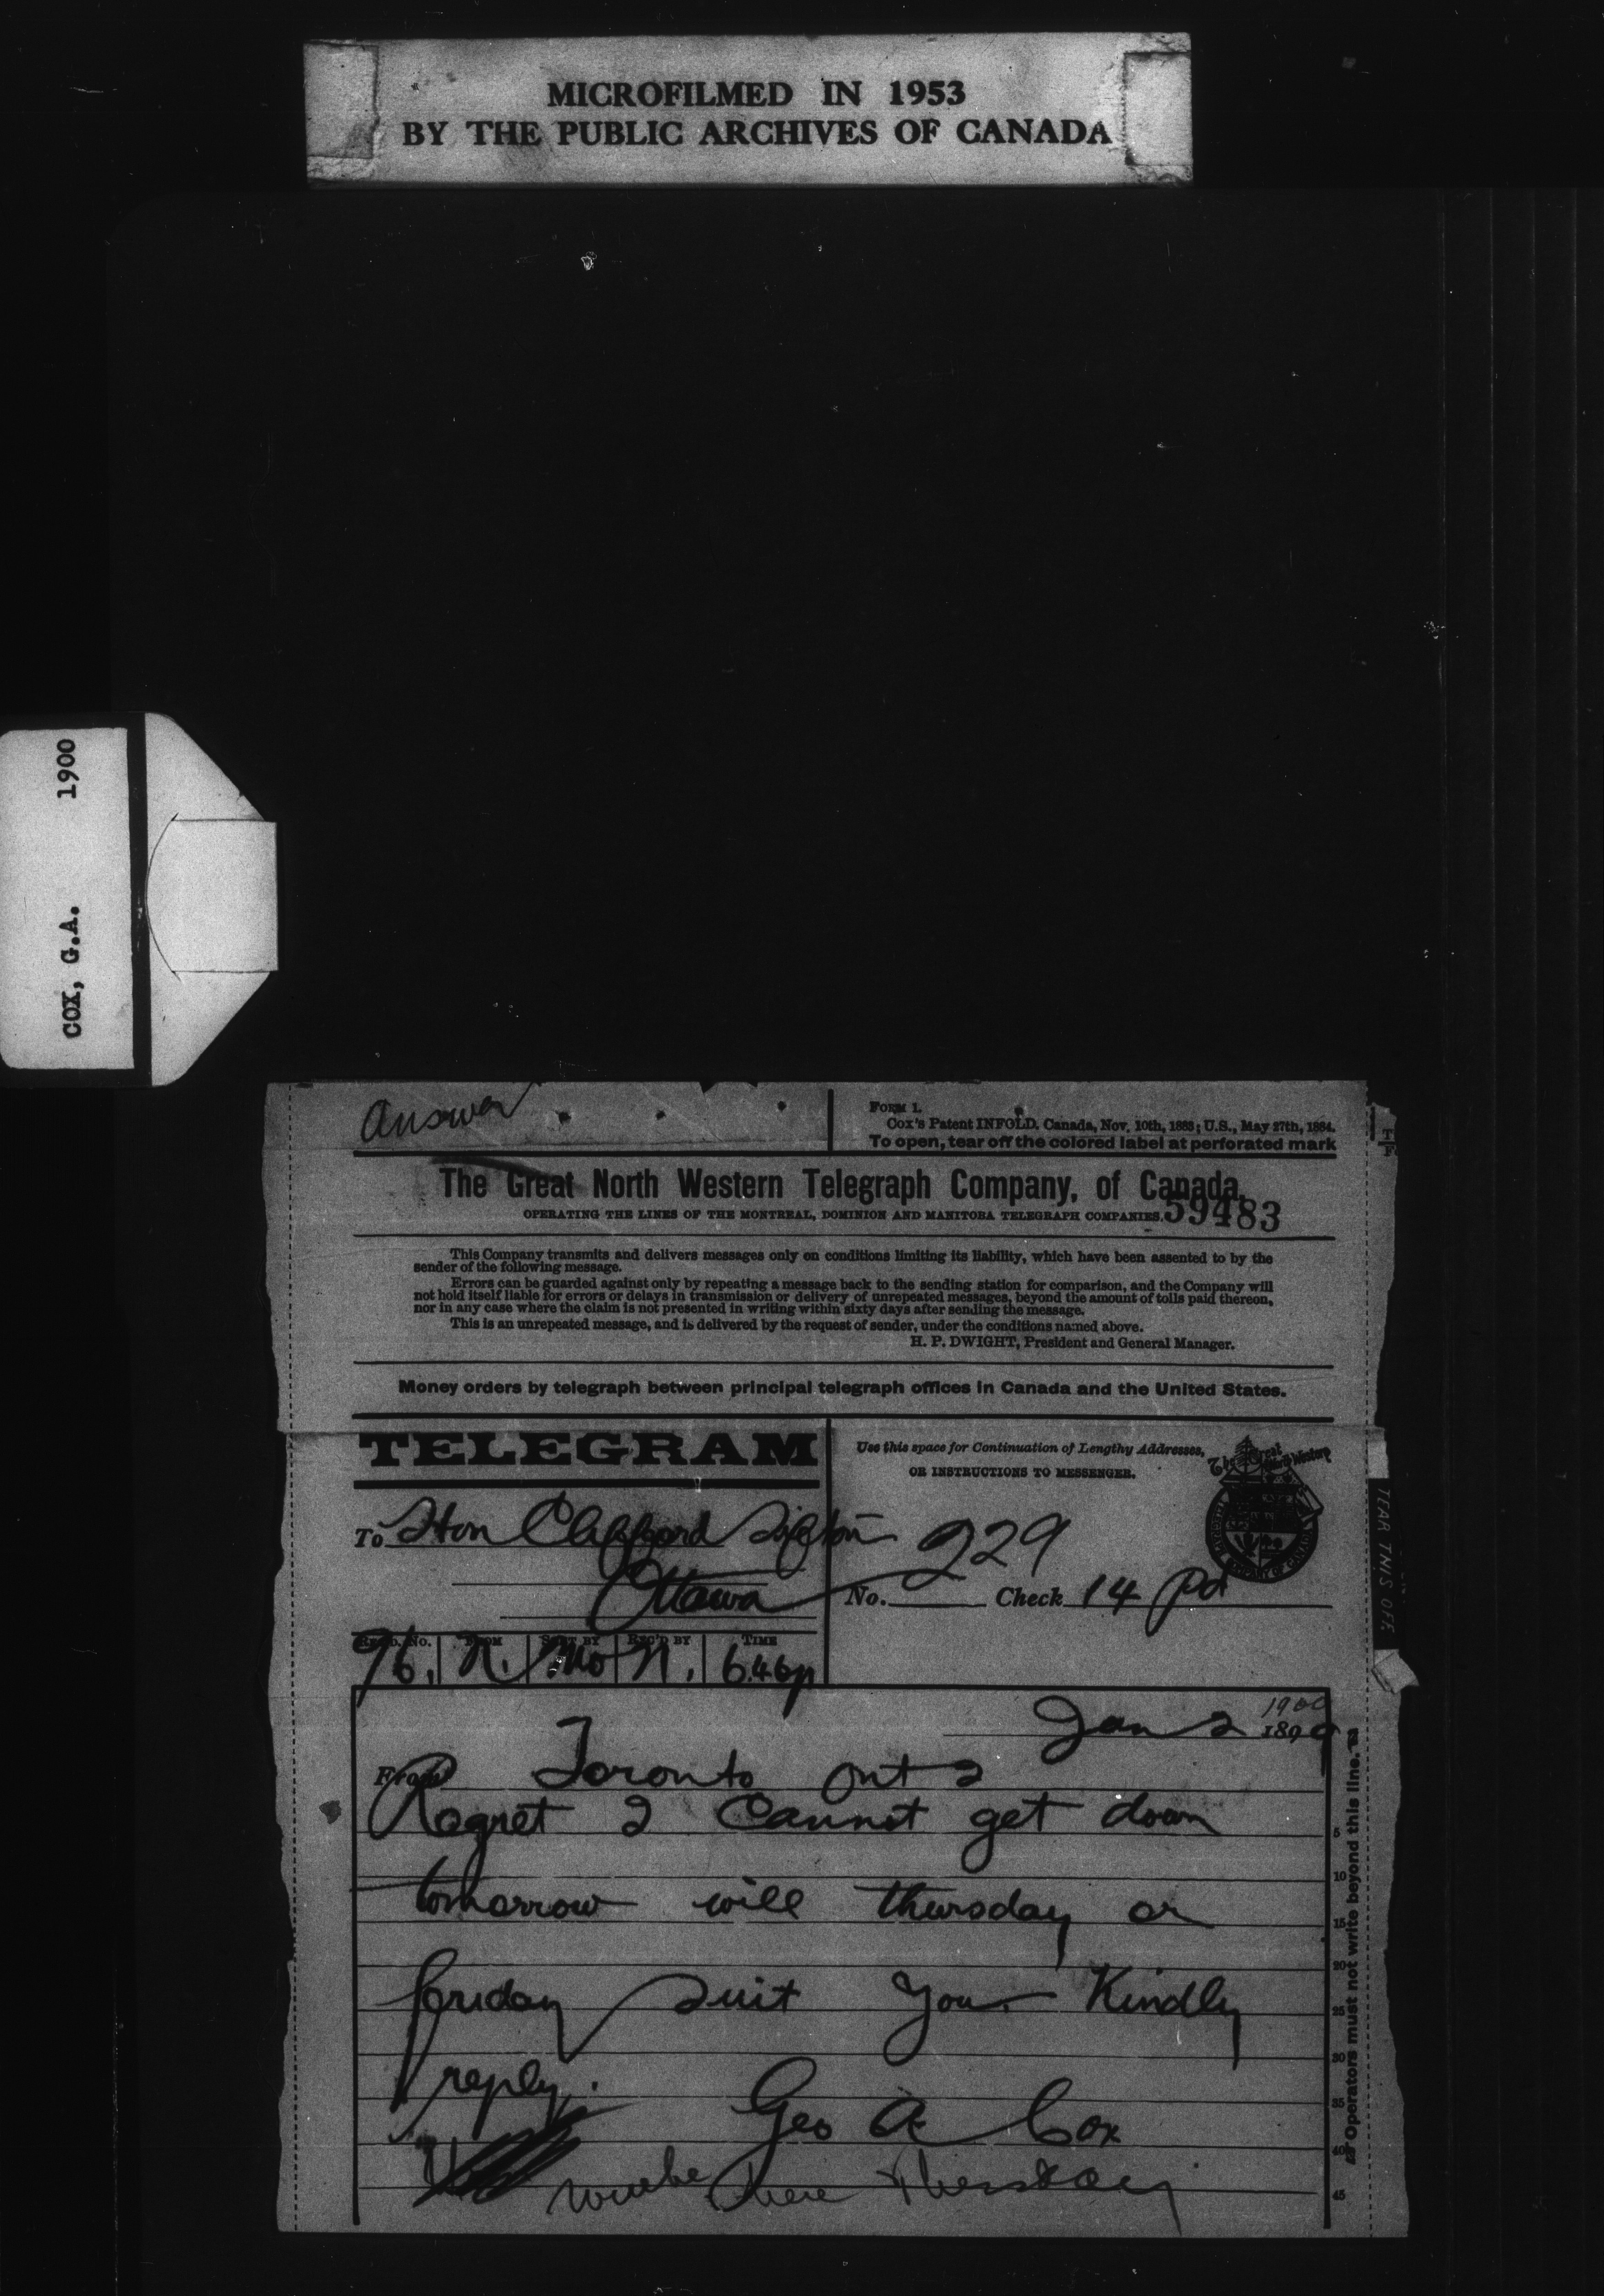 MICROFILMED IN 1953
BY THE PUBLIC ARCHIVES OF CANADA
COX, G.A. 1900
Answer
FORM 1.
Cox's Patent INFOLD. Canada, Nov. 10th, 1883; U.S., May 27th, 1884.
To open, tear off the colored label at perforated mark
The Great North Western Telegraph Company, of Canada,
OPERATING THE LINES OF THE MONTREAL, DOMINION AND MANITOBA TELEGRAPH COMPANIES.
59483
This Company transmits and delivers messages only on conditions limiting its liability, which have been assented to by the
sender of the following message.
Errors can be guarded against only by repeating a message back to the sending station for comparison, and the Company will
not hold itself liable for errors or delays in transmission or delivery of unrepeated messages, beyond the amount of tolls paid thereon,
nor in any case where the claim is not presented in writing within sixty days after sending the message.
This is an unrepeated message, and is delivered by the request of sender, under the conditions named above.
H. P. DWIGHT, President and General Manager.
Money orders by telegraph between principal telegraph offices in Canada and the United States.
TELEGRAM
Use this space for Continuation of Lengthy Addresses,
OR INSTRUCTIONS TO MESSENGER.
The Great North Western
To Hon Clifford Sifton
Ottawa
229
No. Check 14 Pd
TEAR THIS OFF.
No. FROM SENT BY REC'D BY TIME
76. N. Mo N. 6.46p
Jan 2 1900
189
From Toronto Ont 2
Regret I Cannot get down
tomorrow will thursday or
friday suit you. Kindly
reply.
Geo A Cox
there Thursday
Operators must not write beyond this line.
5
10
15
20
25
30
35
40
45